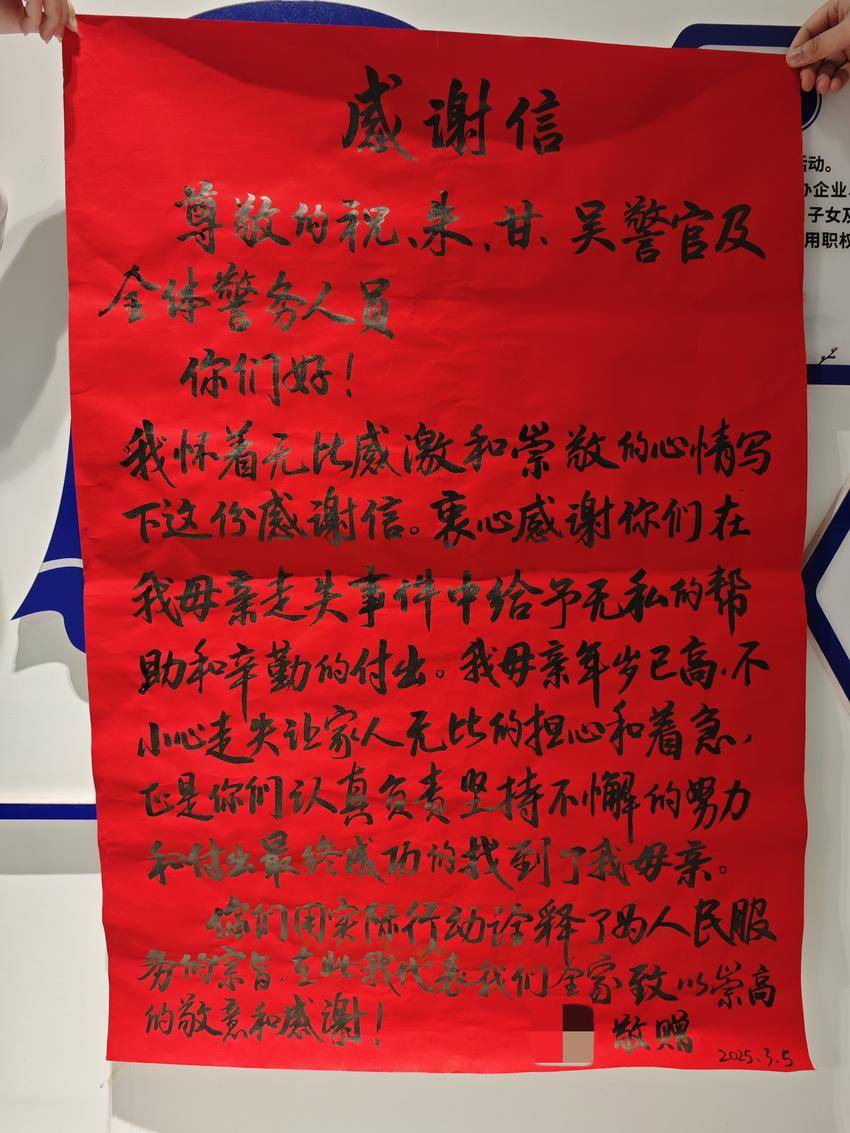 感谢信
尊敬的祝、朱、甘、吴警官及
全体警务人员
你们好！
我怀着无比感激和崇敬的心情写
下这份感谢信。衷心感谢你们在
我母亲走失事件中给予无私的帮
助和辛勤的付出。我母亲年岁已高，不
小心走失让家人无比的担心和着急，
正是你们认真负责坚持不懈的努力
和付出最终成功的找到了我母亲。
你们用实际行动诠释了为人民服
务的宗旨，在此我代表我们全家致以崇高
的敬意和感谢！
敬赠
2025.3.5
活动。
办企业、
子女及
用职权